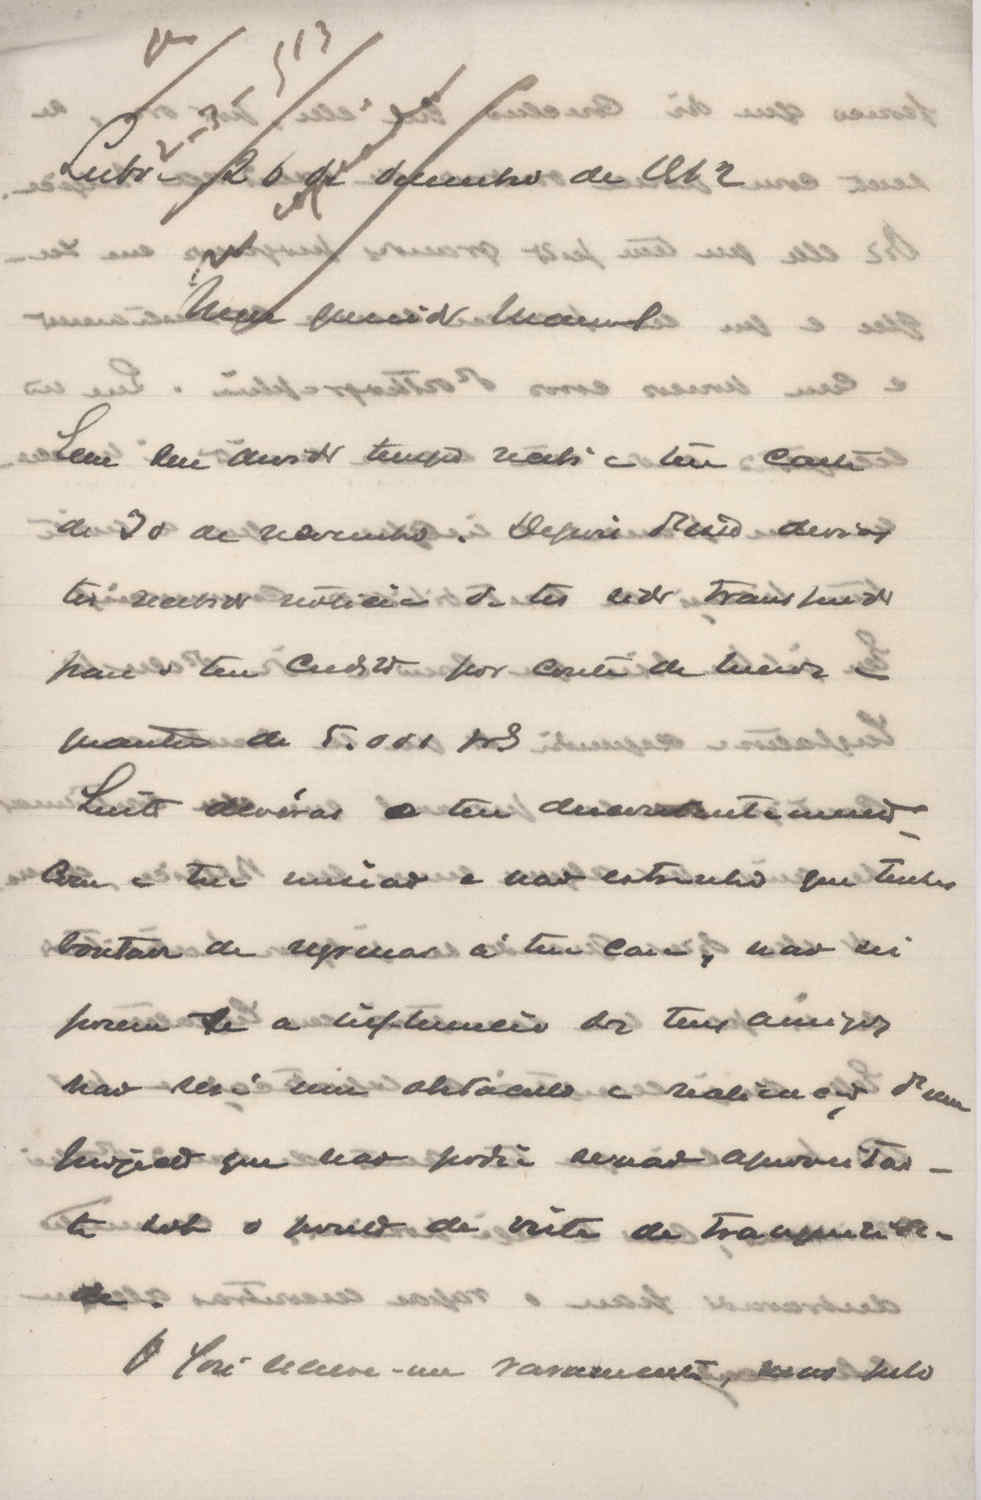 20 de dezembro de 1912
Meu querido Manuel
Em seu devido tempo recebi a tua carta
de 30 de novembro. Depois d'isso devias
ter recebido noticia de ter sido transferido
para o teu credito por conta de
quantia de 5.000
Sinto devéras o teu descontentamento
com a tua missão e não estranho que tenhas
vontade de regressar á tua casa, não sei
porem se a influencia dos teus amigos
não será um obstaculo a realisação d'um
projecto que não podia senão aproveitar-
te sob o ponto de vista de tranquilida-
de.
O José escreve-me raramente, mas pelo